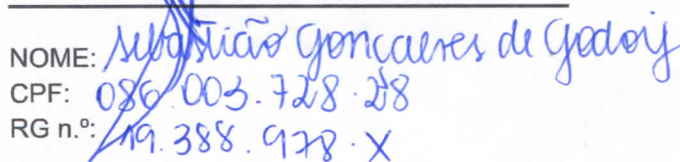 NOME: Sebastião Gonçalves de Godoy
CPF: 086.003.728.28
RG n.º: 19.388.978.X